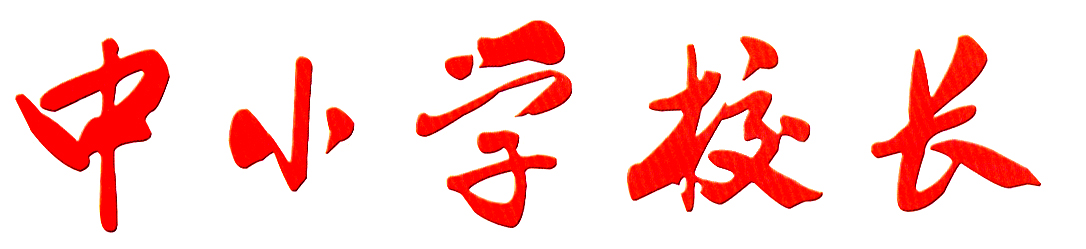 中小学校长